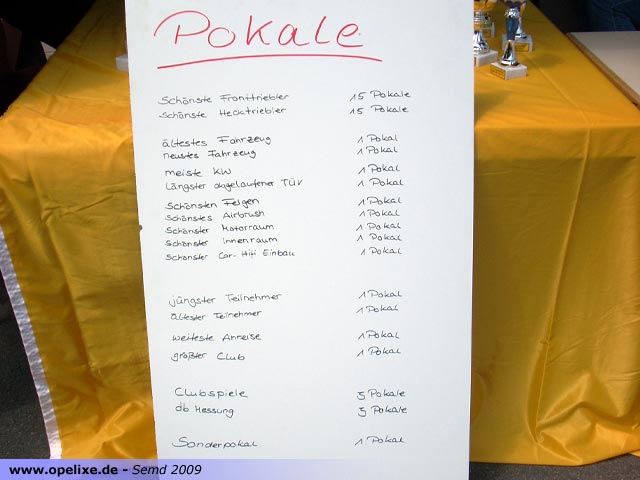 Pokale
Schönste Fronttriebler 15 Pokale
Schönste Hecktriebler 15 Pokale
ältestes Fahrzeug 1 Pokal
neustes Fahrzeug 1 Pokal
meiste KW 1 Pokal
Längster abgelaufener TÜV 1 Pokal
Schönsten Felgen 1 Pokal
Schönstes Airbrush 1 Pokal
Schönster Motorraum 1 Pokal
Schönster Innenraum 1 Pokal
Schönster Car-Hifi Einbau 1 Pokal
jüngster Teilnehmer 1 Pokal
ältester Teilnehmer 1 Pokal
weiteste Anreise 1 Pokal
größter Club 1 Pokal
Clubspiele 3 Pokale
db Messung 3 Pokale
Sonderpokal 1 Pokal
www.opelixe.de - Semd 2009